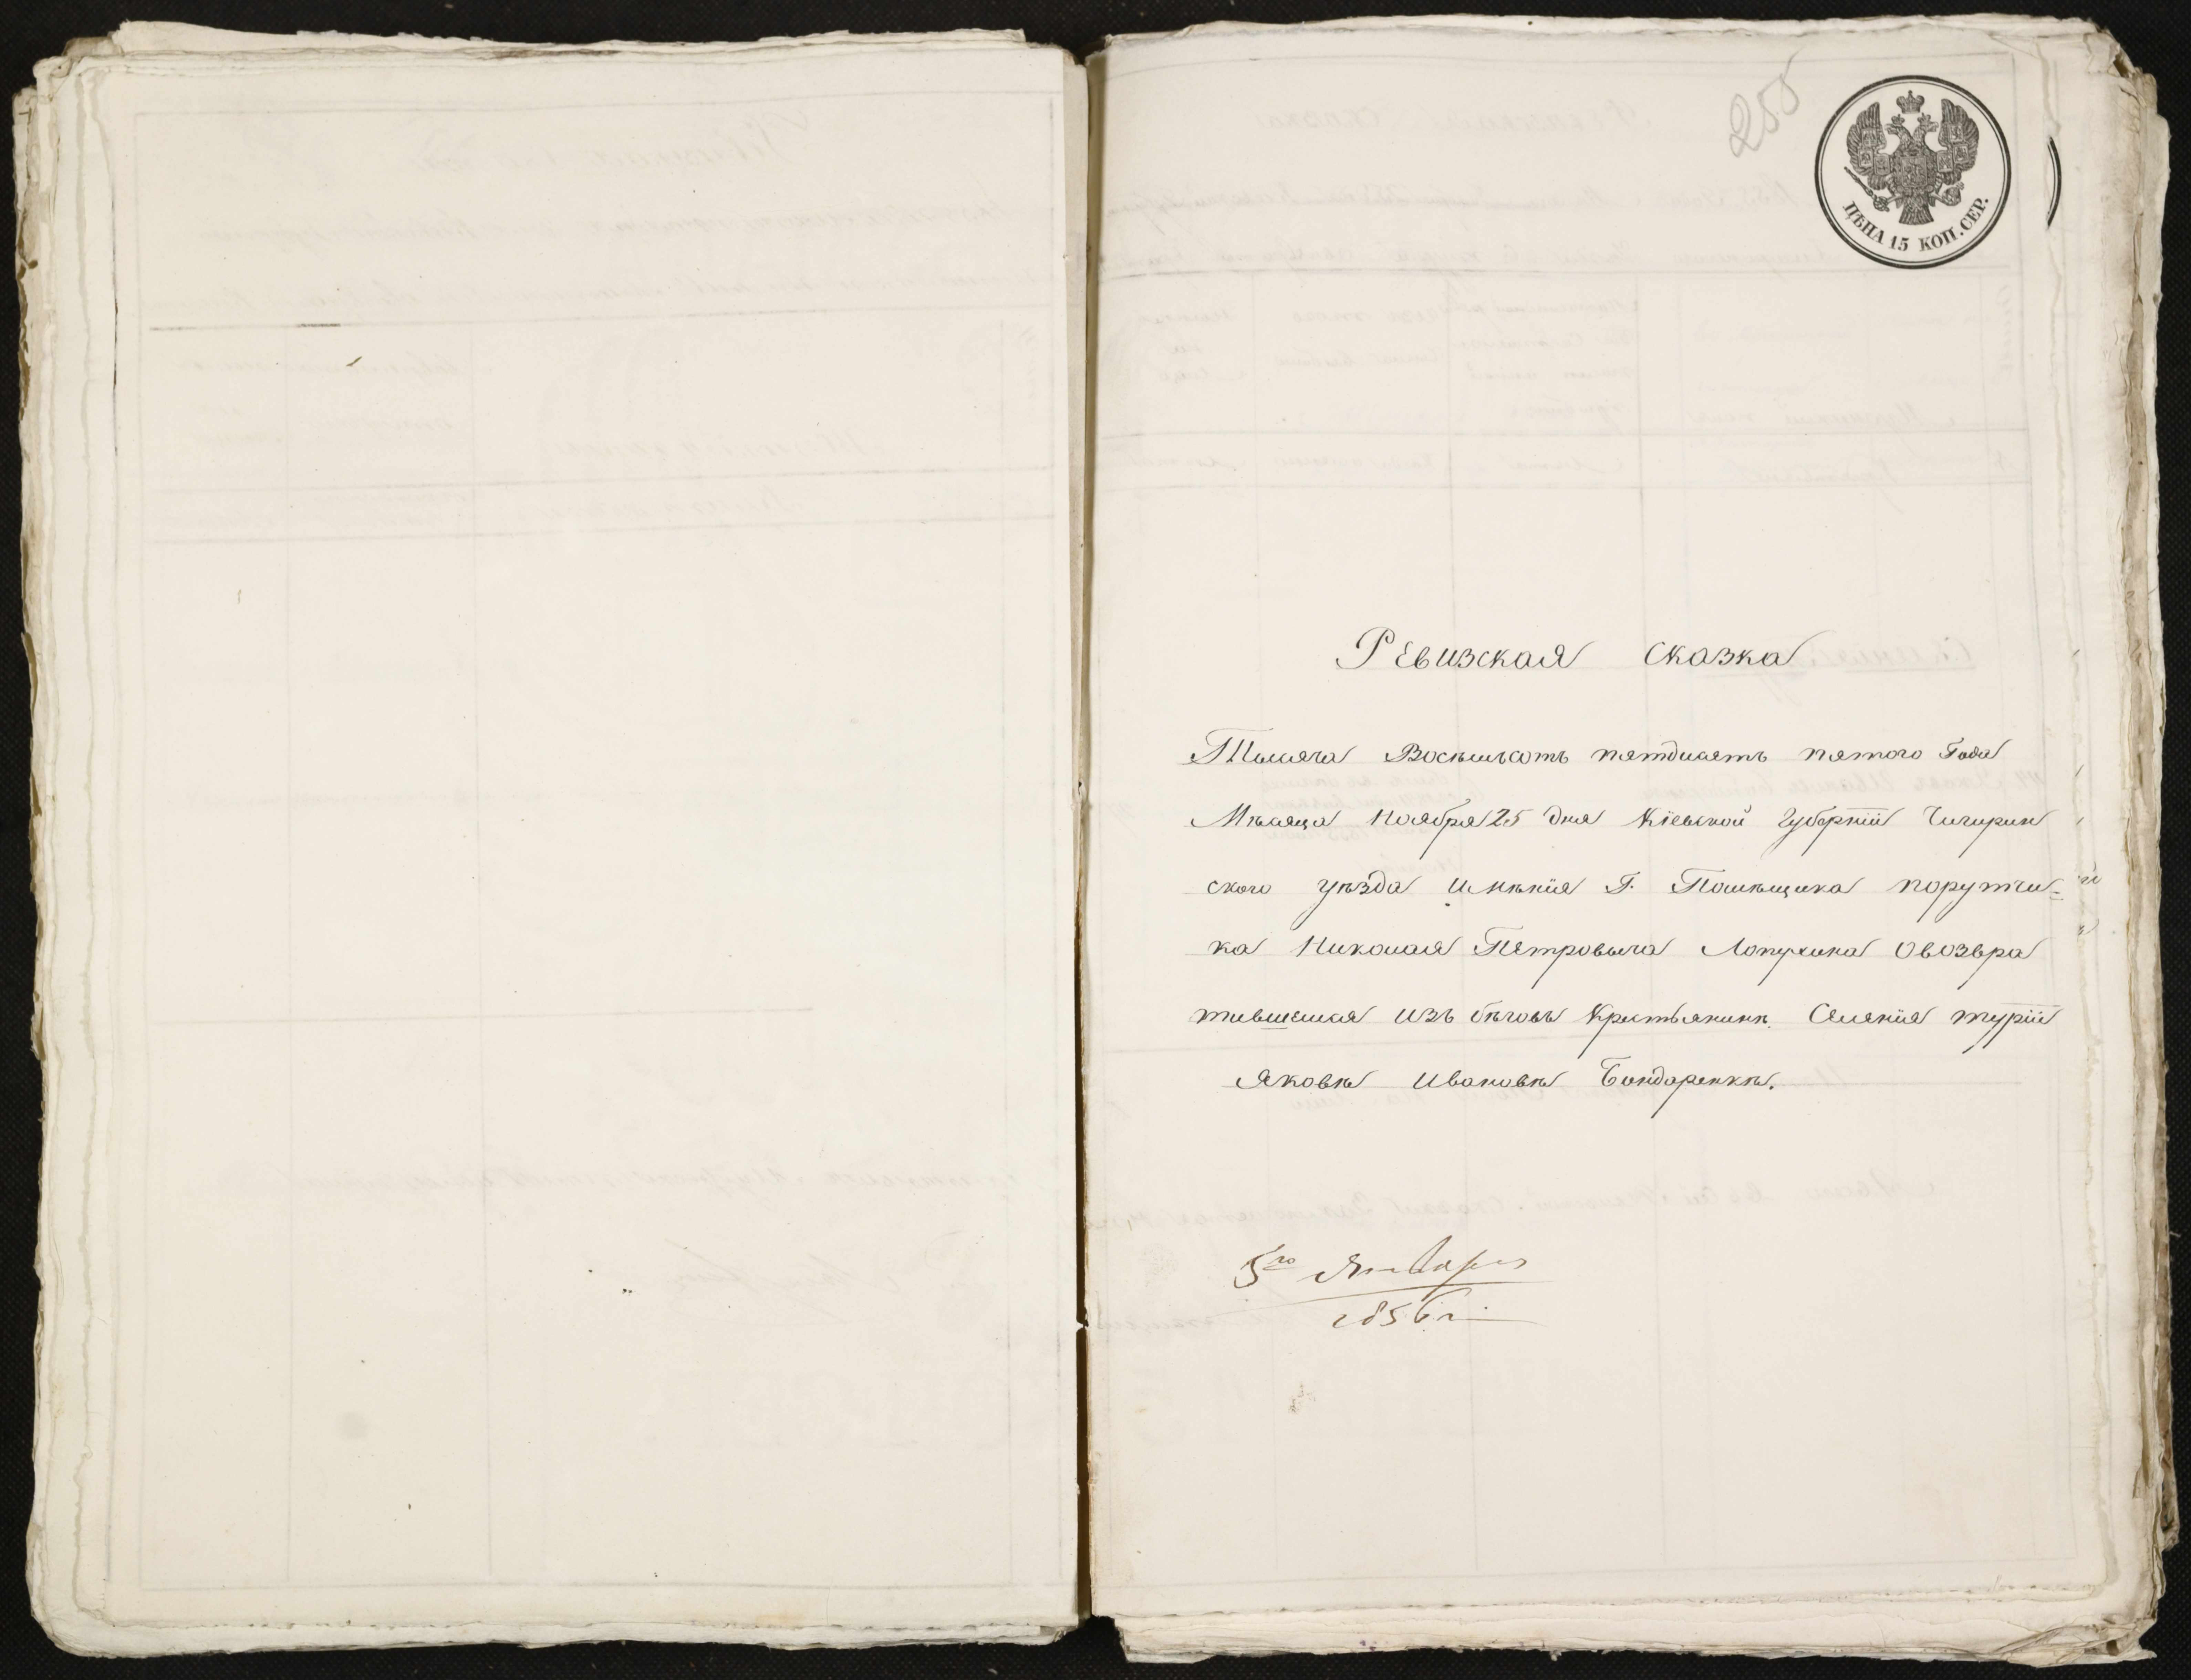 255
ЦѢНА 15 КОП. СЕР.
Ревизская сказка
Тысяча Восѣмьсотъ пятдисятъ пятого Года
Мѣсяца Ноября 25 дня Кіевской Губерніи Чигирин
ского уѣзда имѣнія Г. Помѣщика поручи=
ка Николая Петровыча Лопухина Овозвра
тившемся изъ бѣговъ Крестьянинѣ Селенія турій
Яковѣ Ивановѣ Бондаренкѣ.
5го Января
1856 г.